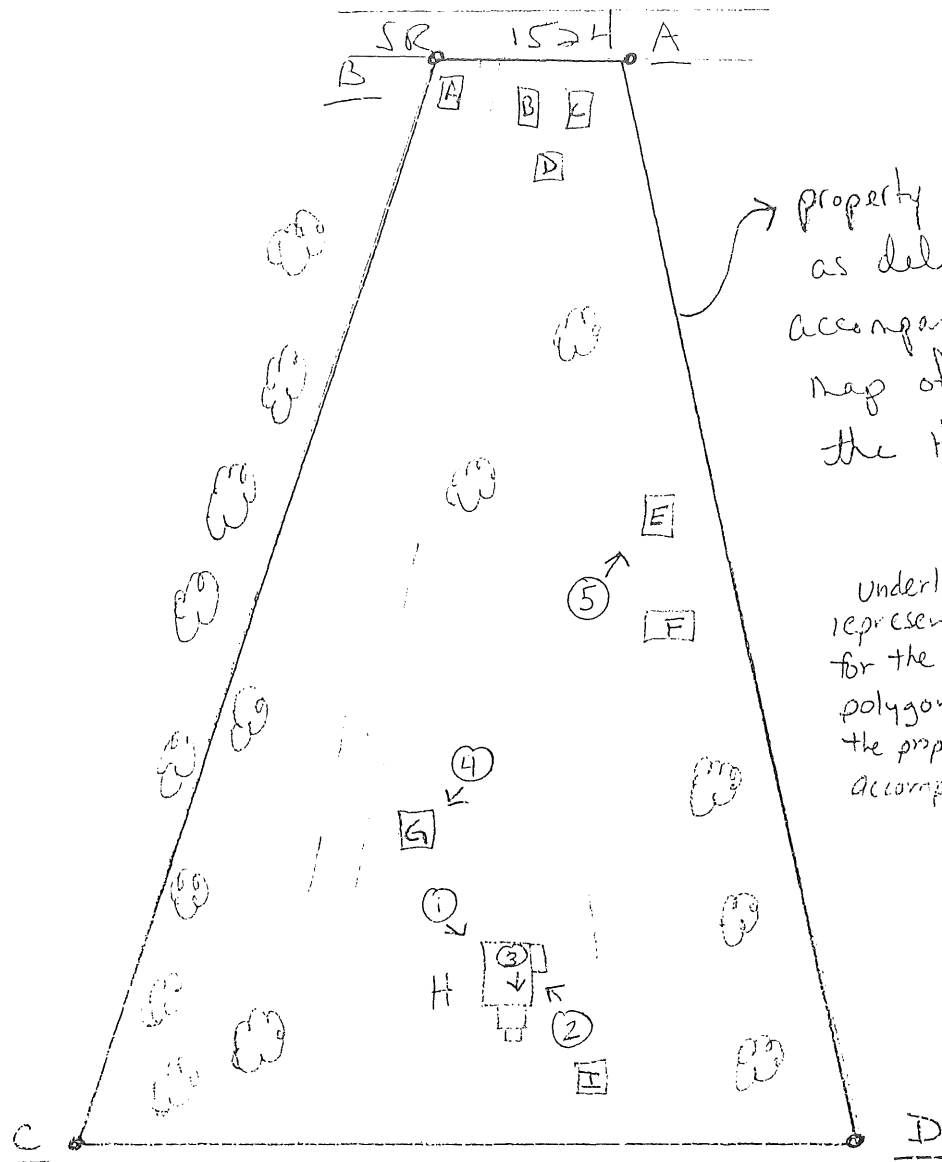 SR 1524 A
B
A
B C
D
property
as del
accompa
map of
the
E
5
F
Underl
represen
for the
polygon
the prop
accomp
4
G
1
3
H
2
I
C D